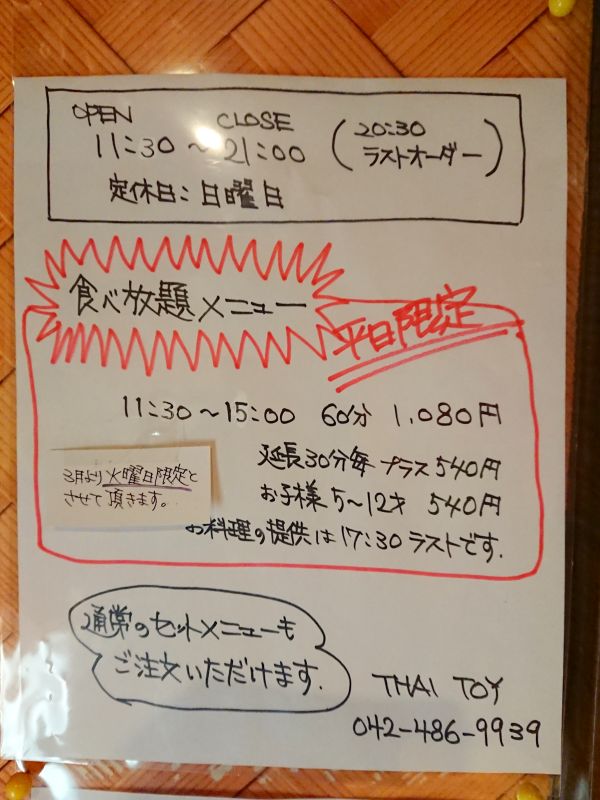 OPEN CLOSE
11:30～21:00 (20:30 ラストオーダー)
定休日:日曜日
食べ放題メニュー
平日限定
11:30～15:00 60分 1,080円
延長30分毎 プラス540円
3月より火曜日限定と
させて頂きます。
お子様5～12才 540円
お料理の提供は17:30ラストです.
通常のセットメニューも
ご注文いただけます.
THAI TOY
042-486-9939